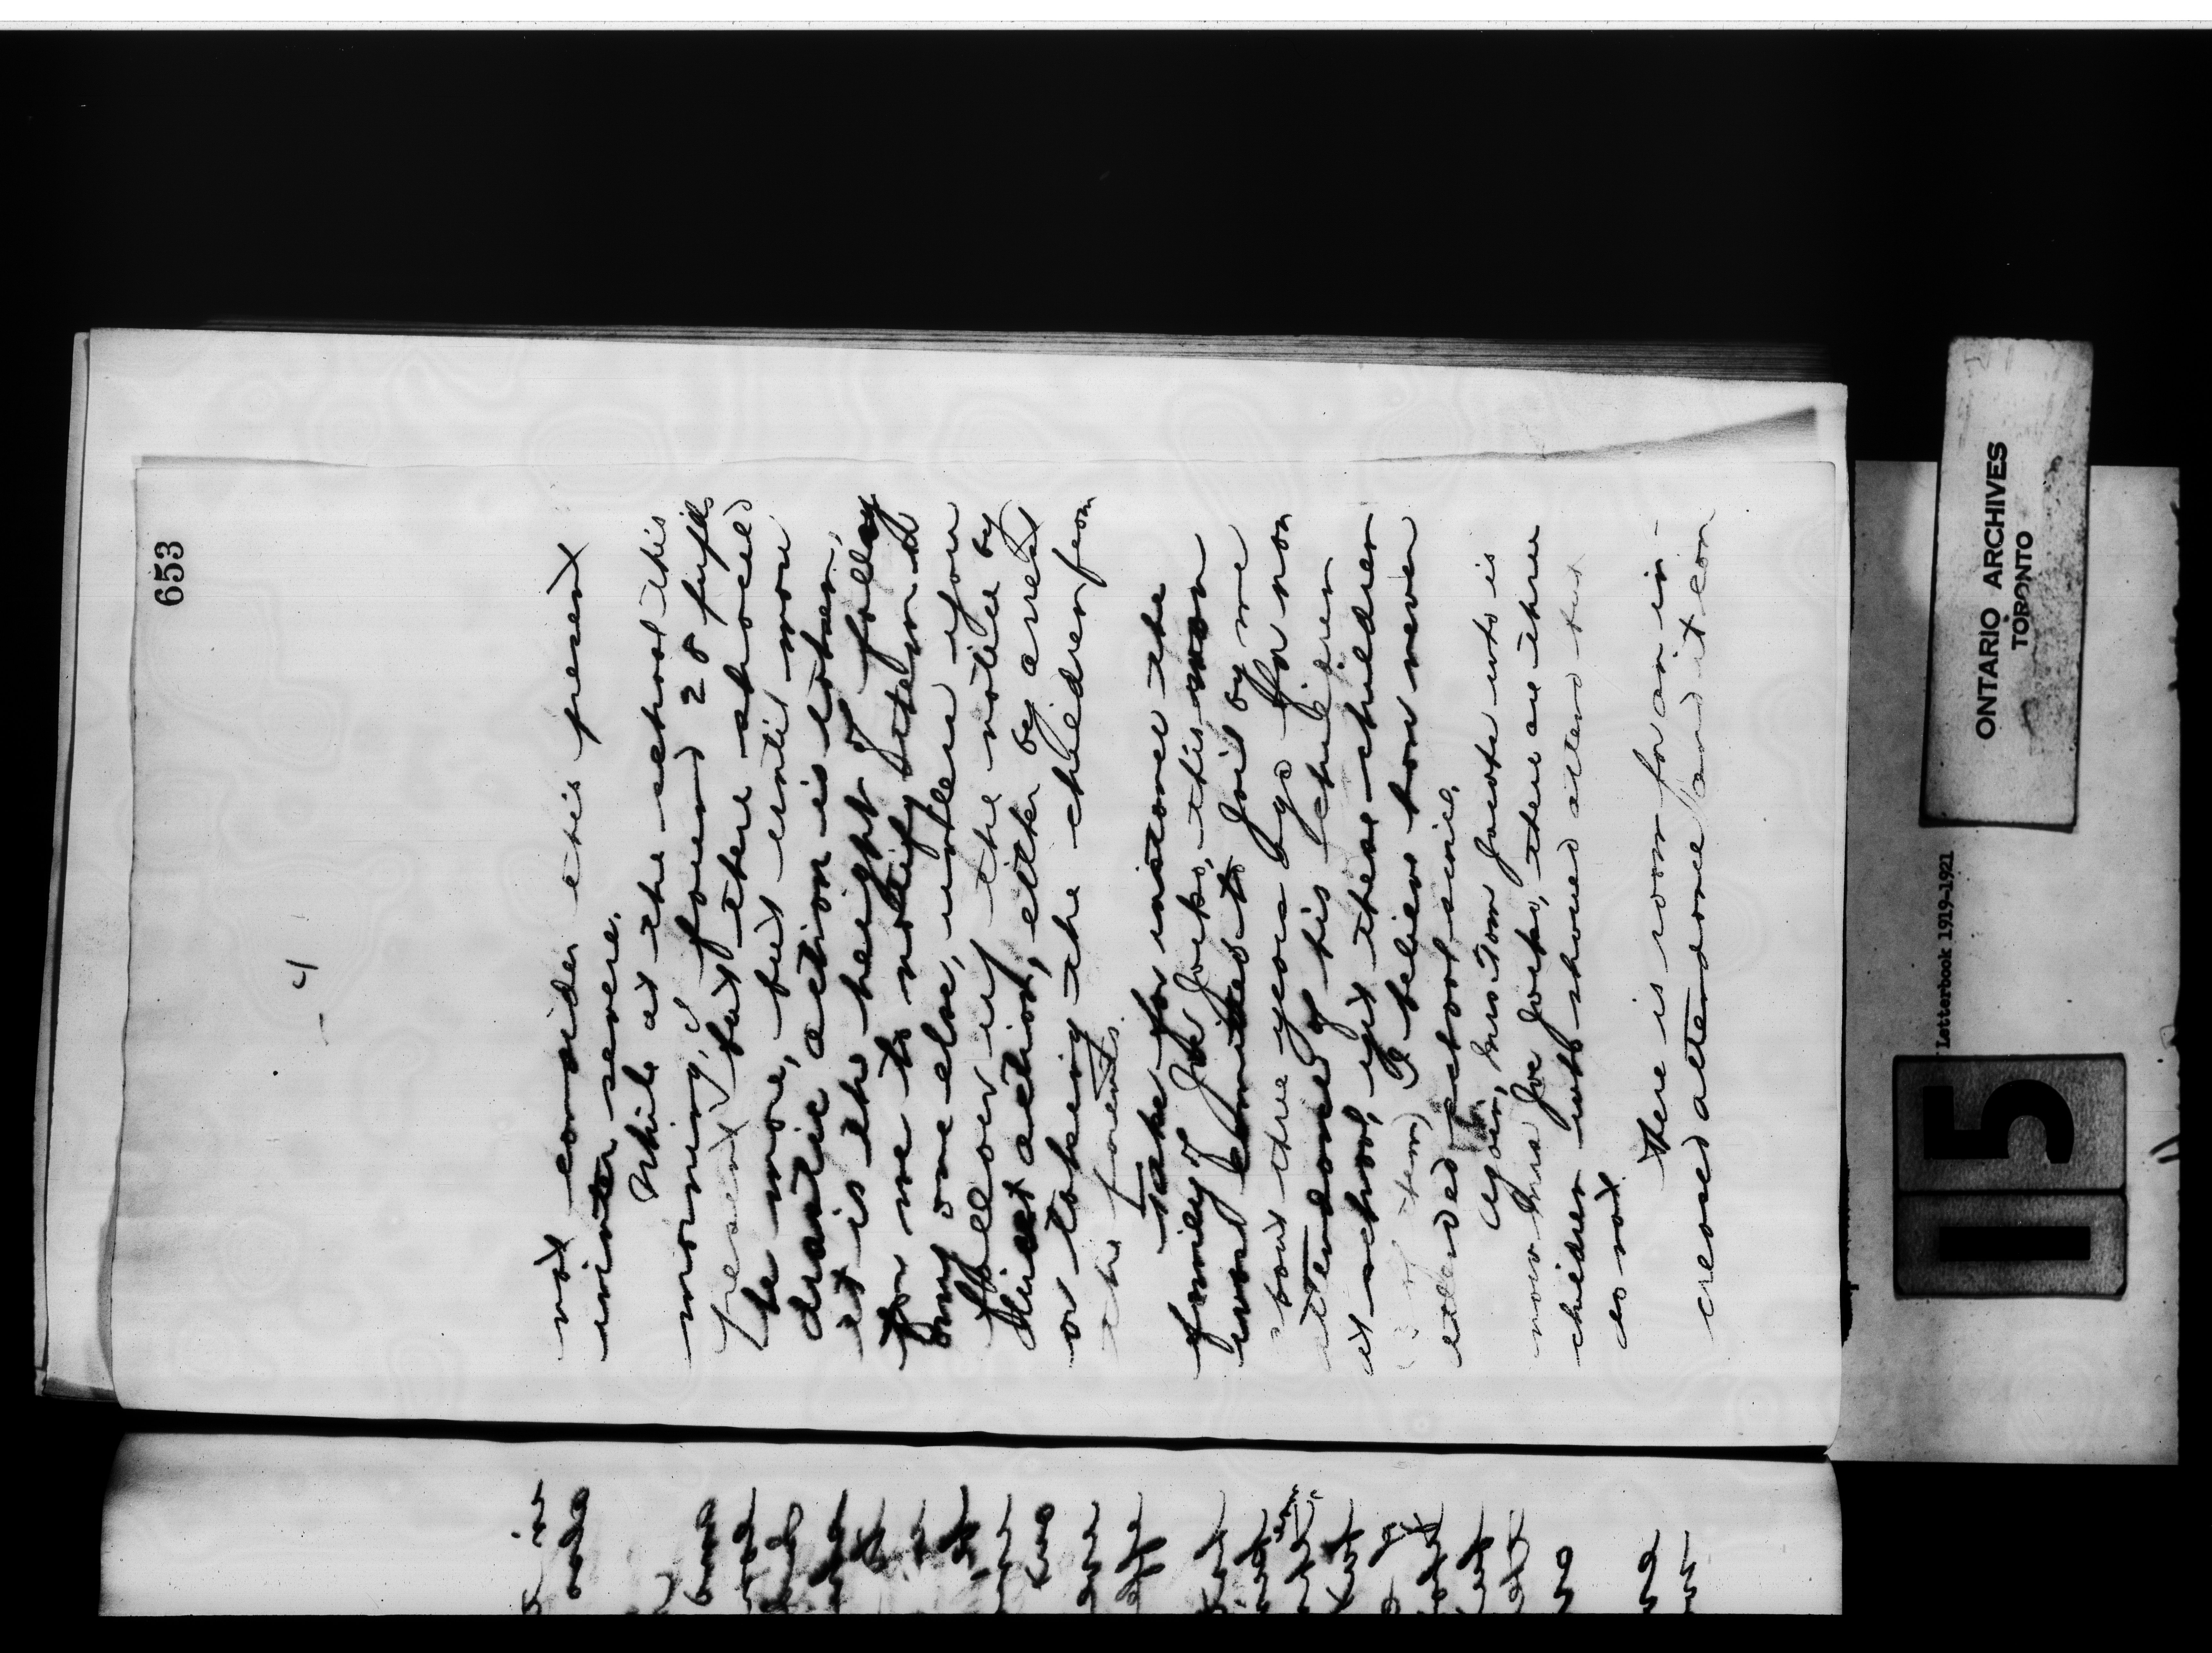 653
- 4
not consider this present
winter severe.
While at the school this
morning, I found 28 pupils
present, but there should
be more, but until more
drastic action is taken,
it is the height of folly
for me to notify them and
any one else, unless upon
follow up the notice by
direct action, either by arrest
or taking the children from
the parents.
Take for instance the
family of Joe Jocko, this man
was committed to jail by me
bout three years ago for non
attendance of his children
at school, yet these children
of them, I believe have never
attended school since.
Again, Mrs Tom Jacote who is
now Mrs Joe Jocko, there are three
children who should attend but
do not.
There is room for an in-
creased attendance and it can
ONTARIO ARCHIVES
TORONTO
Letterbook 1919-1921
15